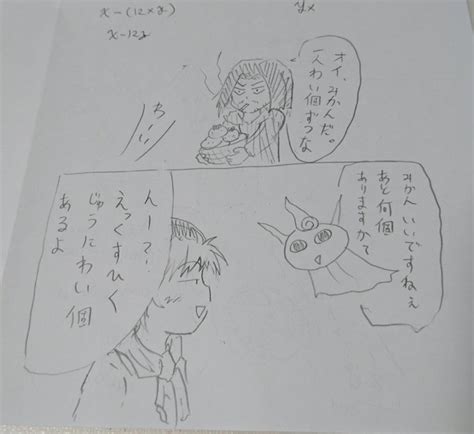 x-(12×y)
x-12y
yx
オイ、みかんだ。
一人わい個ずつな
わーい
みかんいいですねぇ
あと何個
ありますか?
んー?
えっくすひく
じゅうにわい個
あるよ